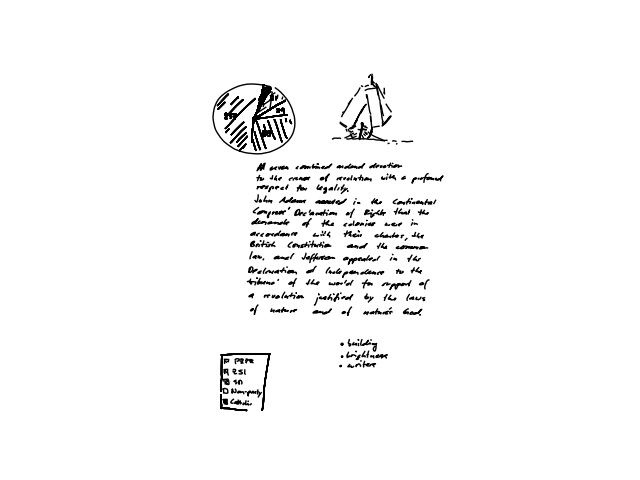 All seven combined ardent devotion
to the cause of revolution with a profound
respect for legality.
John Adams asserted in the Continental
Congress' Declaration of Rights that the
demands of the colonies were in
accordance with their charters, the
British Constitution and the common
law, and Jefferson appealed in the
Declaration of Independence to the
tribunal of the world for support of
a revolution justified by the laws
of nature and of nature's God.
• building
• brightness
• writers
PSI
Non-party
Catholic